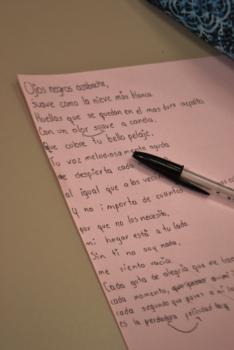 Ojos negros azabache,
suave como la nieve más blanca.
Huellas que se quedan en el mas duro
Con un olor suave a canela.
que cubre tu bello pelaje.
Tu voz melodiosamente aguda
me despierta cada
al igual que a los
Y no importa de cuantos
por que no los necesito.
mi hogar está a tu lado.
Sin ti no soy nada,
me siento vacía.
Cada gota de alegría que me
cada momento,
cada segundo que pases a mi
es la felicidad